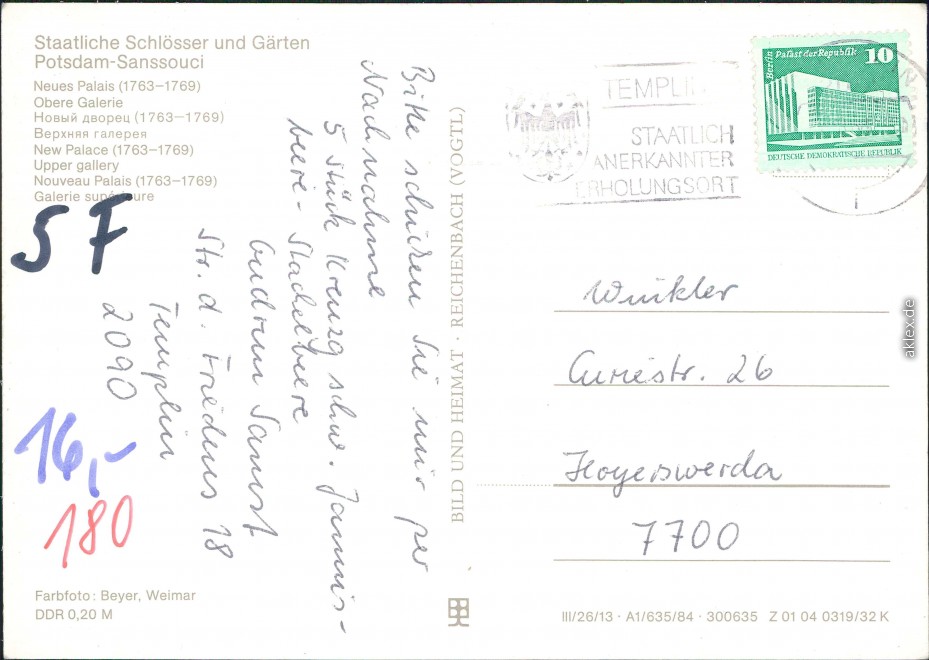 Staatliche Schlösser und Gärten
Potsdam-Sanssouci
Neues Palais (1763–1769)
Obere Galerie
Новый дворец (1763–1769)
Верхняя галерея
New Palace (1763–1769)
Upper gallery
Nouveau Palais (1763–1769)
Galerie supérieure
SF
16,-
180
Bitte schicken Sie mir per
Nachnahme
5 Stück Kreuzg schw. Jannis-
beere- Stachelbeere
Gudrun
Str. d. Friedens 18
Templin
2090
Farbfoto: Beyer, Weimar
DDR 0,20 M
BILD UND HEIMAT · REICHENBACH (VOGTL)
TEMPLIN
STAATLICH
ANERKANNTER
ERHOLUNGSORT
Berlin Palast der Republik 10
DEUTSCHE DEMOKRATISCHE REPUBLIK
Winkler
Curiestr. 26
Hoyerswerda
7700
III/26/13 · A1/635/84 · 300635 Z 01 04 0319/32 K
aklex.de